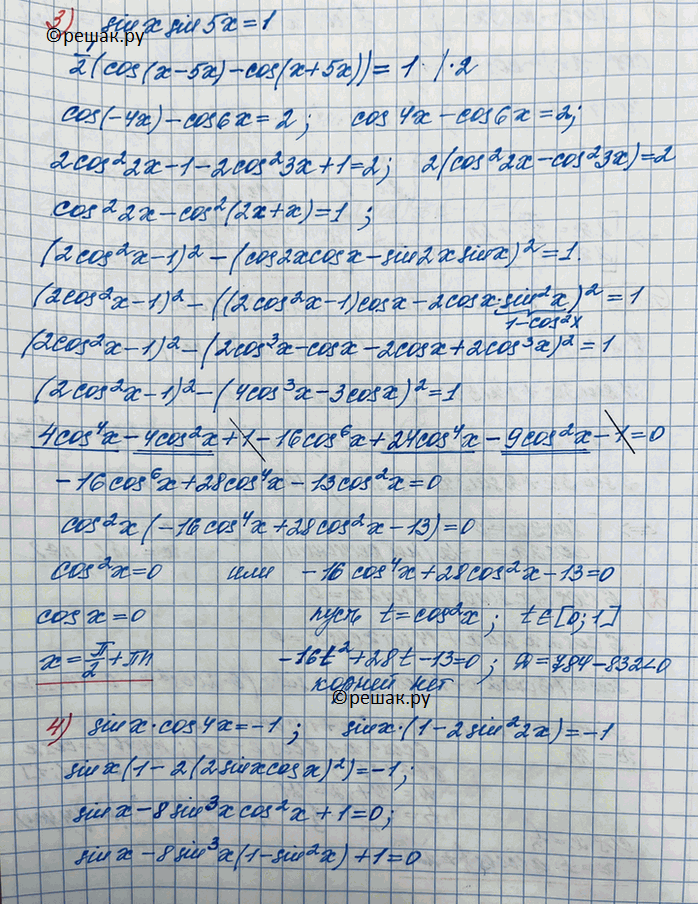 3) sin x sin 5x = 1
©решак.ру
1/2 (cos(x-5x) - cos(x+5x)) = 1 | · 2
cos(-4x) - cos 6x = 2 ; cos 4x - cos 6x = 2;
2cos² 2x - 1 - 2cos² 3x + 1 = 2; 2(cos² 2x - cos² 3x) = 2
cos² 2x - cos² (2x+x) = 1 ;
(2cos² x - 1)² - (cos 2x cos x - sin 2x sin x)² = 1.
(2cos² x - 1)² - ((2cos² x - 1) cos x - 2cos x · sin² x)² = 1
1 - cos² x
(2cos² x - 1)² - (2cos³ x - cos x - 2cos x + 2cos³ x)² = 1
(2cos² x - 1)² - (4cos³ x - 3cos x)² = 1
4cos⁴ x - 4cos² x + 1 - 16cos⁶ x + 24cos⁴ x - 9cos² x - 1 = 0
-16cos⁶ x + 28cos⁴ x - 13cos² x = 0
cos² x (-16cos⁴ x + 28cos² x - 13) = 0
cos² x = 0 или -16 cos⁴ x + 28cos² x - 13 = 0
cos x = 0 пусть t = cos² x ; t ∈ [0; 1]
x = π/2 + πn -16t² + 28t - 13 = 0 ; D = 784 - 832 < 0
корней нет
©решак.ру
4) sin x · cos 4x = -1 ; sin x · (1 - 2 sin² 2x) = -1
sin x (1 - 2 (2 sin x cos x)²) = -1 ;
sin x - 8 sin³ x cos² x + 1 = 0;
sin x - 8 sin³ x (1 - sin² x) + 1 = 0